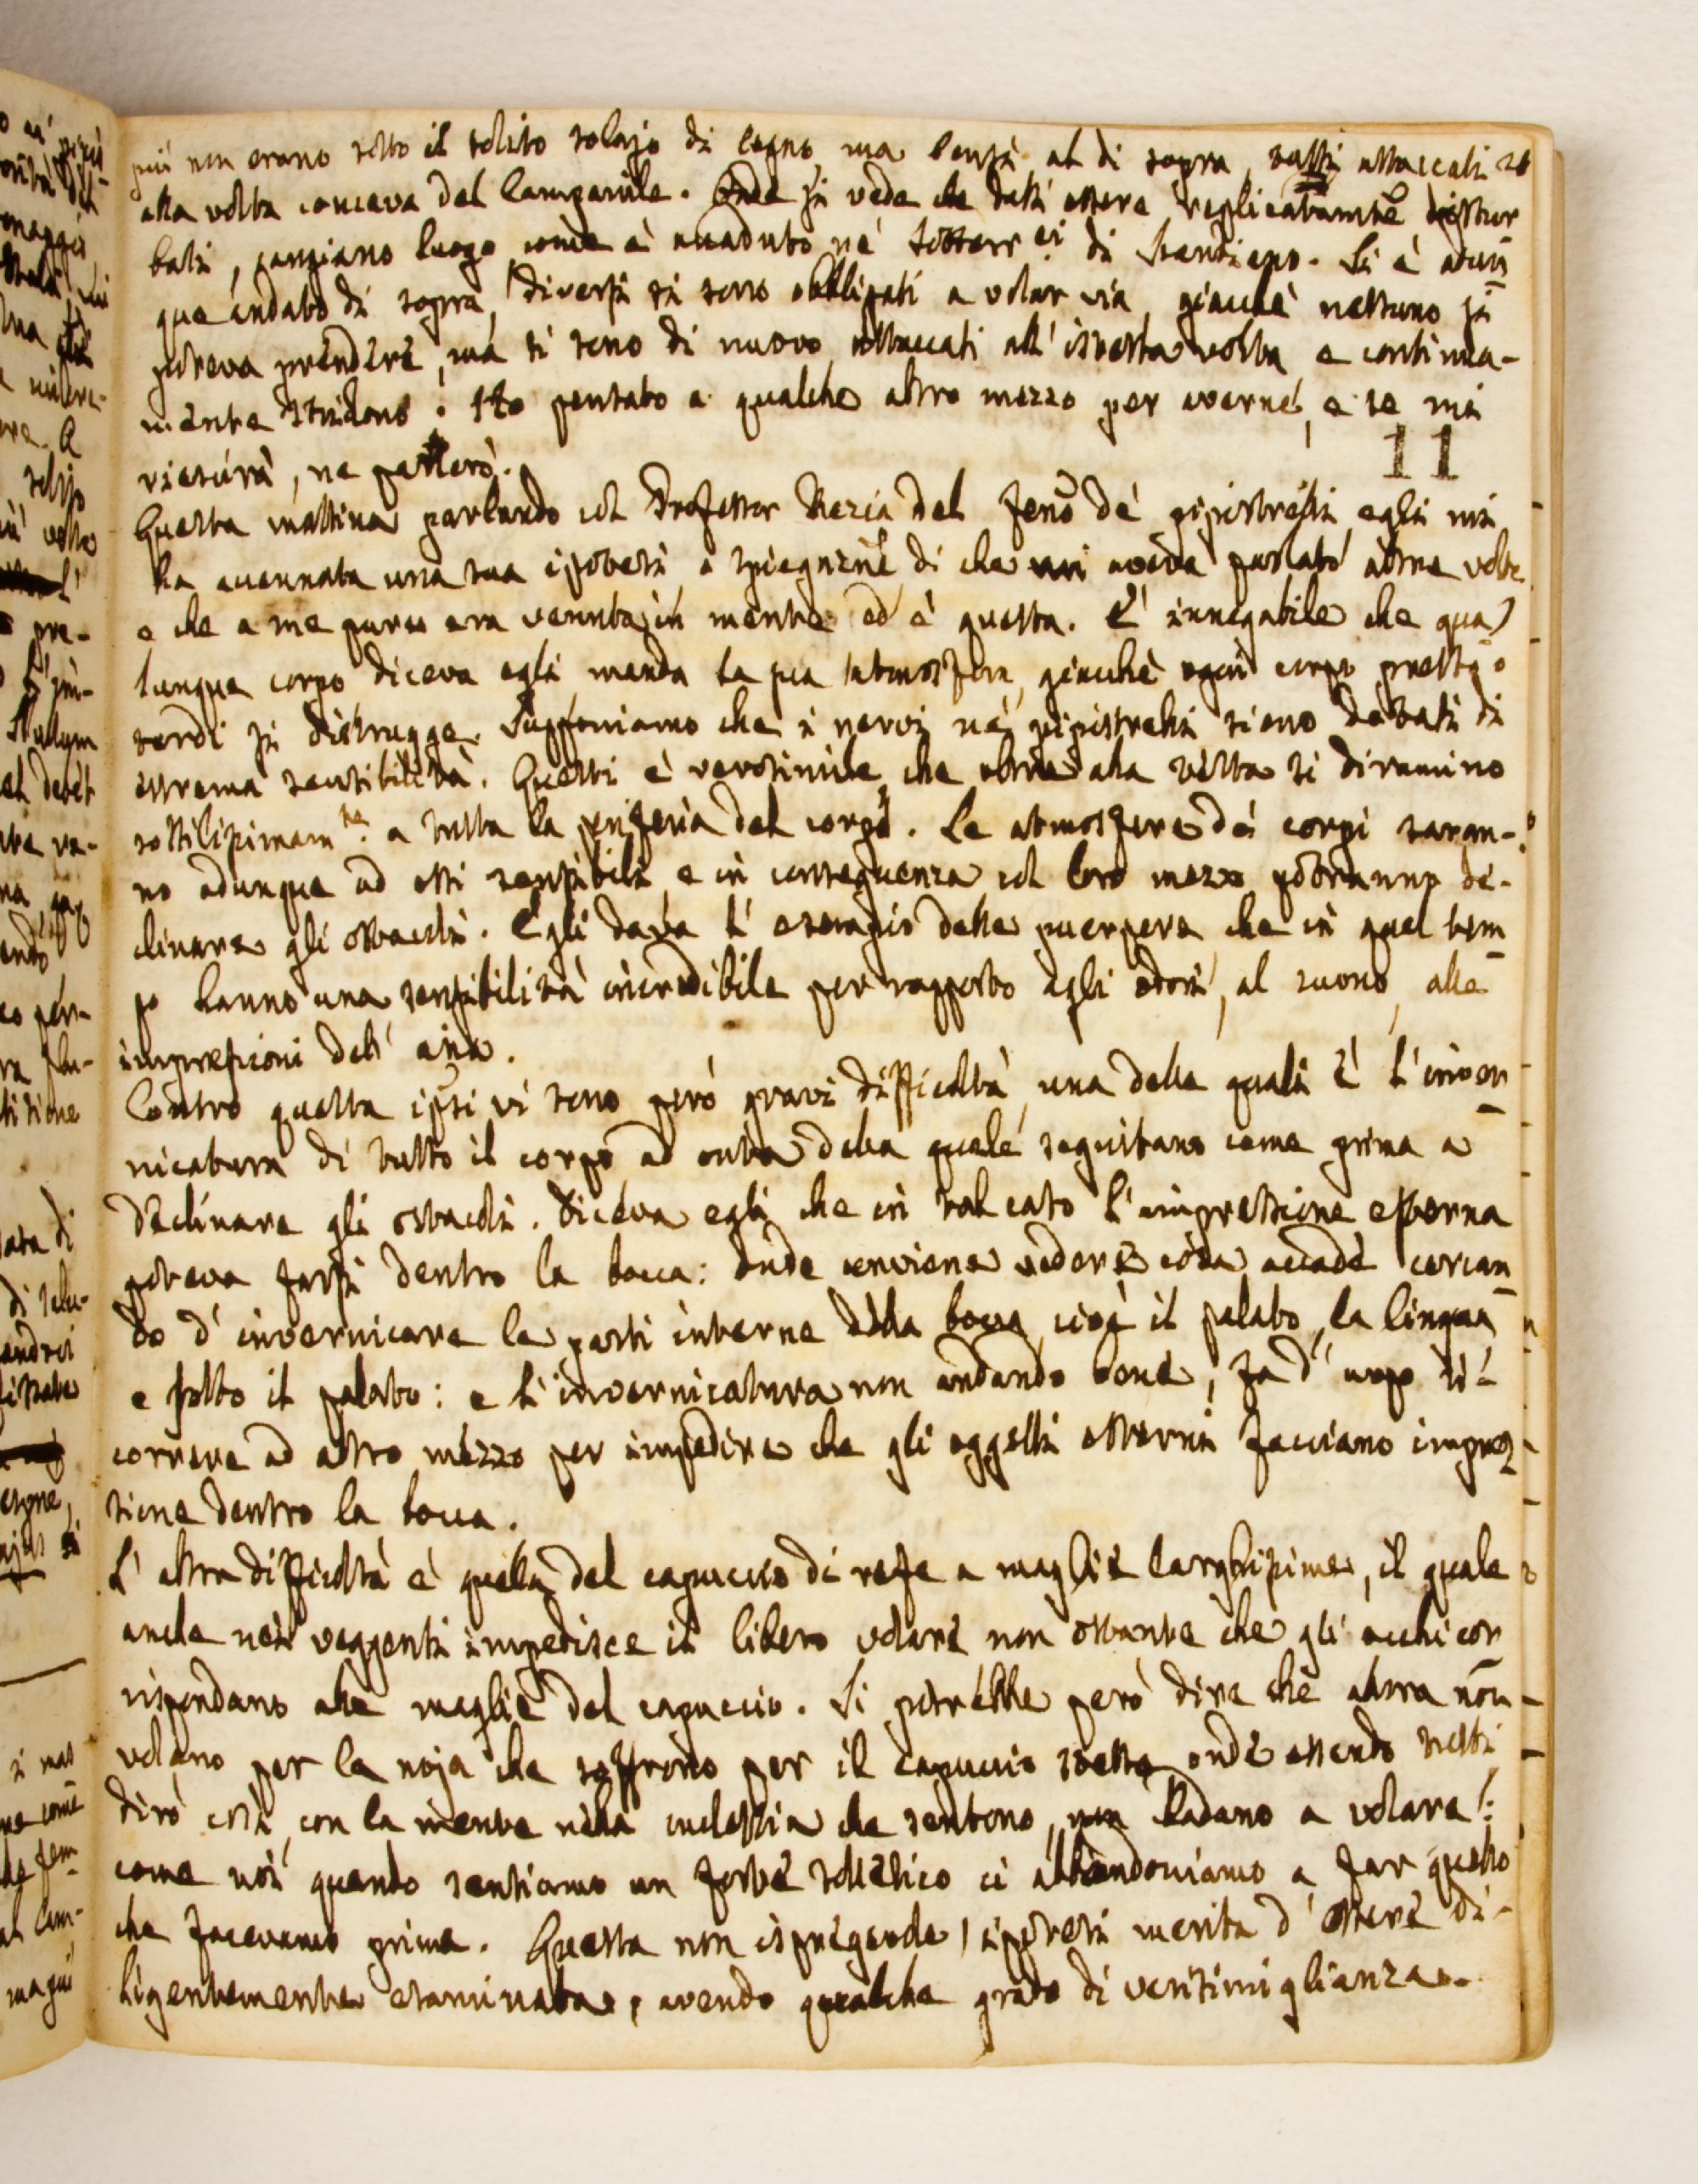 più non erano sotto il solito solajo di legno, ma bensì al di sopra, tutti attaccati 20
alla volta concava del Campanile. Onde si vede che dall' essere replicatamte distur
bati, cangiano luogo come è accaduto ne' sotterrei di Scandiano. Si è adun
que andato di sopra, diversi si sono obbligati a volar via, giacchè nessuno si
poteva prendere, ma si sono di nuovo attaccati all' istessa volta e continua-
mente stridono. Ho pensato a qualche altro mezzo per averne, e se mi
riescirà, ne parlerò.
11
Questa mattina parlando col Professor Rezia del feno de' pipistrelli egli mi
ha accennata una sua ipotesi o spiegazne di che avea parlato altre volte
e che a me pure era venuta in mente ed è questa. È innegabile che qua
lunque corpo diceva egli manda la sua atmosfera, giacchè ogni corpo presto o
tardi si distrugge. Supponiamo che i nervi ne' pipistrelli sieno dotati di
estrema sensibilità. Questi è verosimile che oltre alla testa si diramino
sottilissimamte a tutta la periferia del corpo. Le atmosfere dei corpi saran-
no adunque ad essi sensibili e in conseguenza col loro mezzo potranno de-
clinare gli ostacoli. Egli dava l' esempio delle puerpere che in quel tem
po hanno una sensibilità incredibile per rapporto agli odori, al suono, alle
impressioni dell' aria.
Contro questa ipsi vi sono però gravi difficoltà, una delle quali è l' inver
nicatura di tutto il corpo ad onta della quale seguitano come prima a
declinare gli ostacoli. Diceva egli che in tal caso l' impressione esterna
poteva farsi dentro la bocca: onde conviene vedere cosa accade cercan
do d' invernicare le parti interne della bocca, cioè il palato, la lingua
e sotto il palato: e l' invernicatura non andando bene, fa d' uopo ri-
correre ad altro mezzo per impedire che gli oggetti esterni facciano impres
sione dentro la bocca.
L' altra difficoltà è quella del capuccio di refe a maglie larghissime, il quale
anche nei veggenti impedisce il libero volare non ostante che gli occhi cor
rispondano alle maglie del capuccio. Si potrebbe però dire che allora non
volano per la noja che soffrono per il capuccio stesso, onde essendo tutti,
dirò così, con la mente nella molestia che sentono, non badano a volare:
come noi quando sentiamo un forte solletico ci abbandoniamo a far quello
che facevamo prima. Questa non ispregevole ipotesi merita d' essere di-
ligentemente esaminata, avendo qualche grado di verisimiglianza.